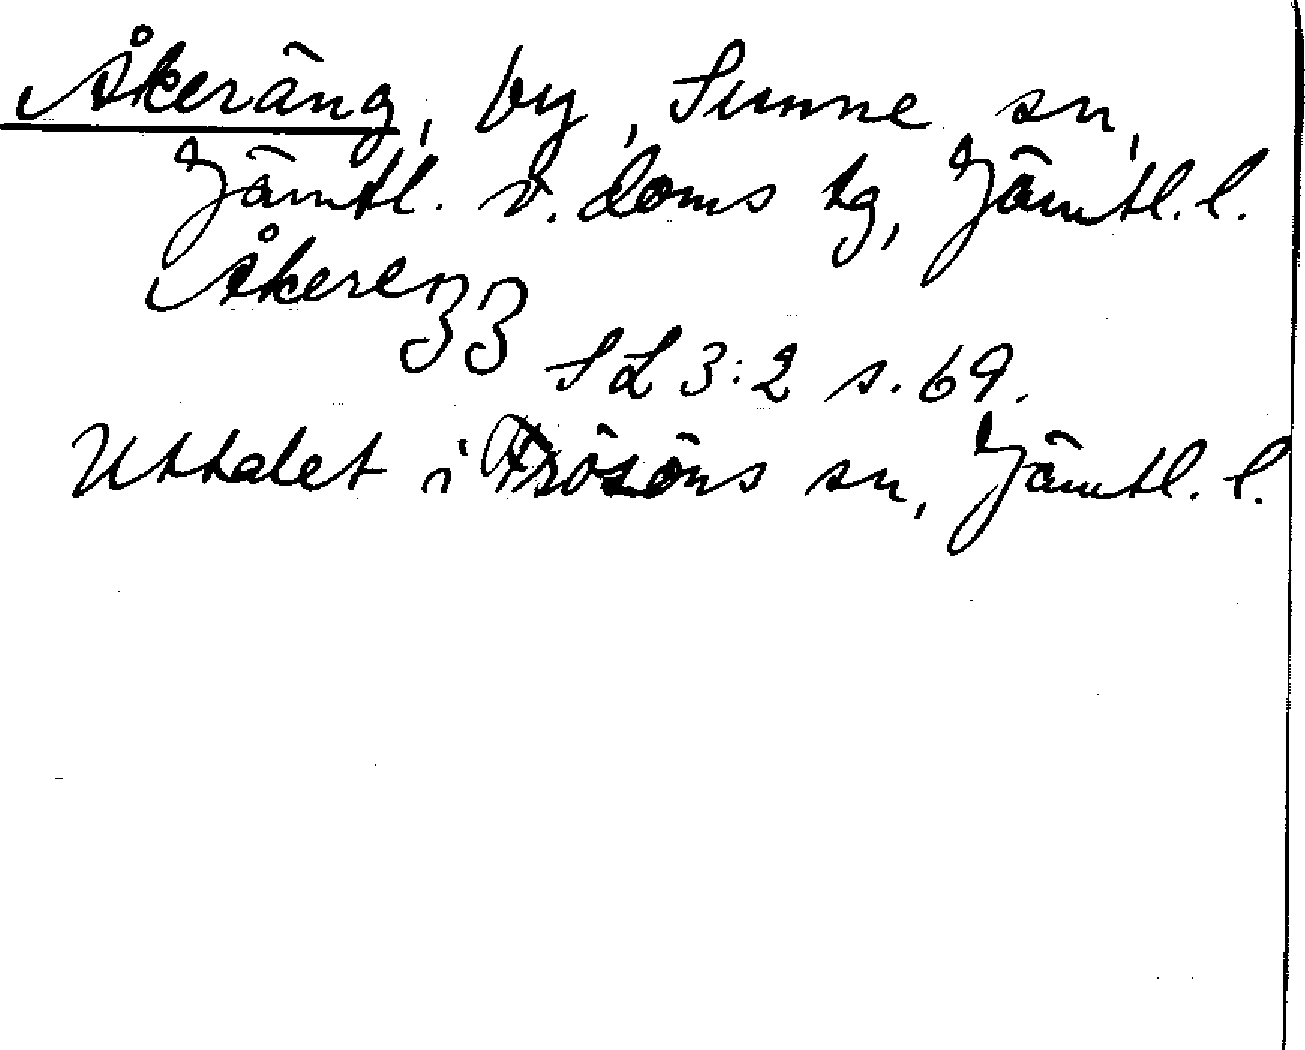 Åkeräng, by, Sunne sn,
Jämtl. v. doms tg, Jämtl. l.
Åkereŋŋ
SL 3:2 s. 69.
Uttalet i Frösöns sn, Jämtl. l.